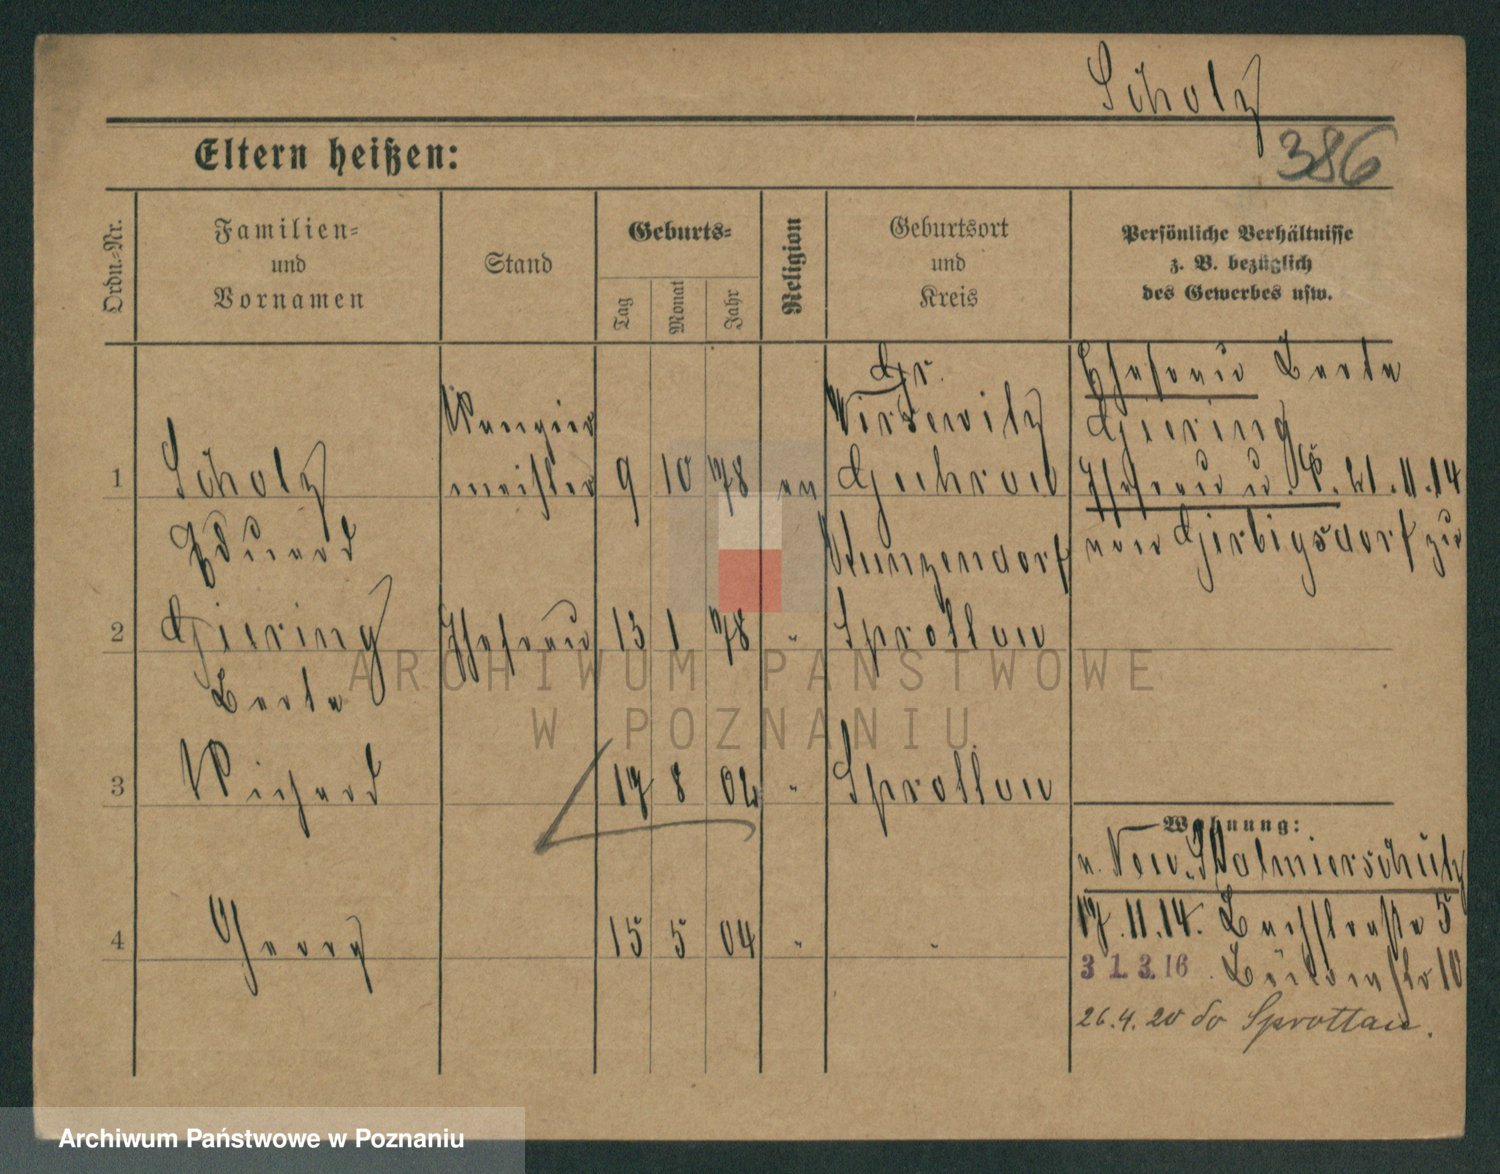 Scholz
386
Eltern heißen:
Ordn.-Nr.
Familien-
und
Vornamen
Stand
Geburts-
Tag
Monat
Jahr
Religion
Geburtsort
und
Kreis
Persönliche Verhältnisse
z. B. bezüglich
des Gewerbes usw.
1
Scholz
Eduard
Rangier
meister
9
10
78
ev
Gr.
Wirsewitz
Guhrau
Ehefrau Berta
Giering
Ehefrau u. 21.11.14
von Girbigsdorf zu
2
Giering
Berta
Ehefrau
13
1
78
"
Kunzendorf
Sprottau
3
Richard
17
8
02
"
Sprottau
4
Georg
15
5
04
"
"
Wohnung:
v. Neu.
17.11.14. Bachstraße 5
31.3.16
10
26.4.20 do Sprottau.
ARCHIWUM PAŃSTWOWE
W POZNANIU
Archiwum Państwowe w Poznaniu